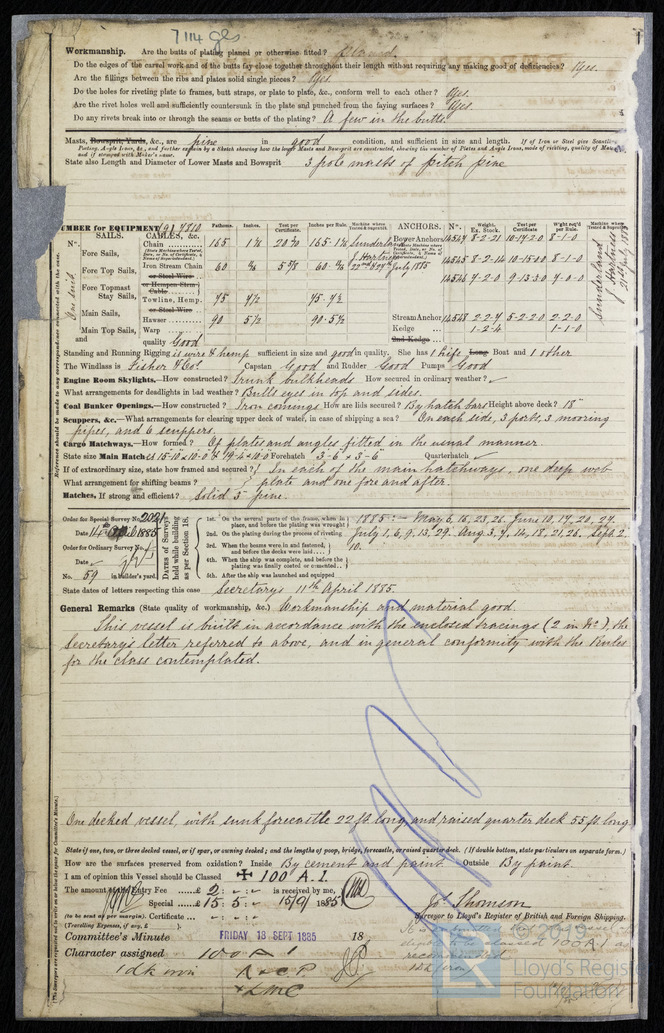 7114 gls
Workmanship. Are the butts of plating planed or otherwise fitted? Planed.
Do the edges of the carvel work and of the butts fay close together throughout their length without requiring any making good of deficiencies? Yes.
Are the fillings between the ribs and plates solid single pieces? Yes.
Do the holes for riveting plate to frames, butt straps, or plate to plate, &c., conform well to each other? Yes.
Are the rivet holes well and sufficiently countersunk in the plate and punched from the faying surfaces? Yes.
Do any rivets break into or through the seams or butts of the plating? A few in the butts.
Masts, Bowsprit, Yards, &c., are pine in good condition, and sufficient in size and length. If of Iron or Steel give Scantling
Plating, Angle Irons, &c., and further explain by a Sketch showing how the lower Masts and Bowsprit are constructed, showing the number of Plates and Angle Irons, mode of riveting, quality of
and if stamped with Maker's name.
State also Length and Diameter of Lower Masts and Bowsprit 3 pole masts of pitch pine
NUMBER for EQUIPMENT
SAILS. CABLES, &c. Fathoms. Inches. Test per Certificate. Inches per Rule. Machine where Tested & Superintd. ANCHORS. Nº. Weight. Ex. Stock. Test per Certificate Wght req'd per Rule. Machine where Tested & Superintd.
Nº. Chain 165 Sunderland Bower Anchors 14547 8-2-21 10-17-2-0 8-1-0
Fore Sails,
Fore Top Sails, Iron Stream Chain 60 J. Hartness 22nd July 1885 8-2-14 10-15-0-0 8-1-0
or Steel Wire
or Hempen Stm Cable
Fore Topmast Stay Sails, Towline, Hemp 75 4½ 75-4½ 9-13-3-0 7-0-0
Main Sails, or Steel Wire
Hawser 90 5½ 90-5½ Stream Anchor 14548 2-2-7 5-2-2-0 2-2-0
Main Top Sails, Warp Kedge 1-2-4 1-1-0
and quality Good 2nd Kedge
Standing and Running Rigging is wire & hemp sufficient in size and good in quality. She has 1 life Long Boat and 1 other
The Windlass is Fisher & Co's Capstan Good and Rudder Good Pumps Good
Engine Room Skylights.—How constructed? Trunk bulkheads How secured in ordinary weather?
What arrangements for deadlights in bad weather? Bulls eyes in top and sides.
Coal Bunker Openings.—How constructed? Iron comings How are lids secured? By hatch bars Height above deck? 18"
Scuppers, &c.—What arrangements for clearing upper deck of water, in case of shipping a sea? On each side, 3 ports, 3 mooring
pipes, and 6 scuppers.
Cargo Hatchways.—How formed? Of plates and angles fitted in the usual manner.
State size Main Hatch Forehatch 3-6 × 3-6 Quarterhatch
If of extraordinary size, state how framed and secured? In each of the main hatchways, one deep web
What arrangement for shifting beams? plate and one fore and after.
Hatches, If strong and efficient? Solid 3" pine.
Order for Special Survey No. 2021
Date 14th April 1885
Order for Ordinary Survey No.
Date
No. 59 in builder's yard.
DATES of Surveys held while building as per Section 18.
1st. On the several parts of the frame, when in place, and before the plating was wrought
2nd. On the plating during the process of riveting
3rd. When the beams were in and fastened, and before the decks were laid
4th. When the ship was complete, and before the plating was finally coated or cemented
5th. After the ship was launched and equipped
1885:— May 5, 16, 23, 26. June 10, 17, 20, 27.
July 1, 6, 9, 13, 29. Aug. 3, 7, 14, 18, 21, 26. Sept. 2
10.
State dates of letters respecting this case Secretary's 11th April 1885
General Remarks (State quality of workmanship, &c.) Workmanship and material good.
This vessel is built in accordance with the enclosed tracings (2 in Nº), the
Secretary's letter referred to above, and in general conformity with the Rules
for the class contemplated.
One decked vessel, with sunk forecastle 22 ft. long and raised quarter deck 55 ft. long
State if one, two, or three decked vessel, or if spar, or awning decked; and the lengths of poop, bridge, forecastle, or raised quarter deck. (If double bottom, state particulars on separate form.)
How are the surfaces preserved from oxidation? Inside By cement and paint Outside By paint
I am of opinion this Vessel should be Classed ✠ 100 A.1.
The amount of the Entry Fee £ 2 : - : - is received by me,
Special £ 15 : 5 : - 15/9/ 1885
(to be sent as per margin.) Certificate
(Travelling Expenses, if any, £ )
Jos. Thomson
Surveyor to Lloyd's Register of British and Foreign Shipping.
Committee's Minute FRIDAY 18 SEPT 1885 18
Character assigned 100 A 1
1 dk iron A & C P
+ LMC
© 2019
Lloyd's Register
Foundation